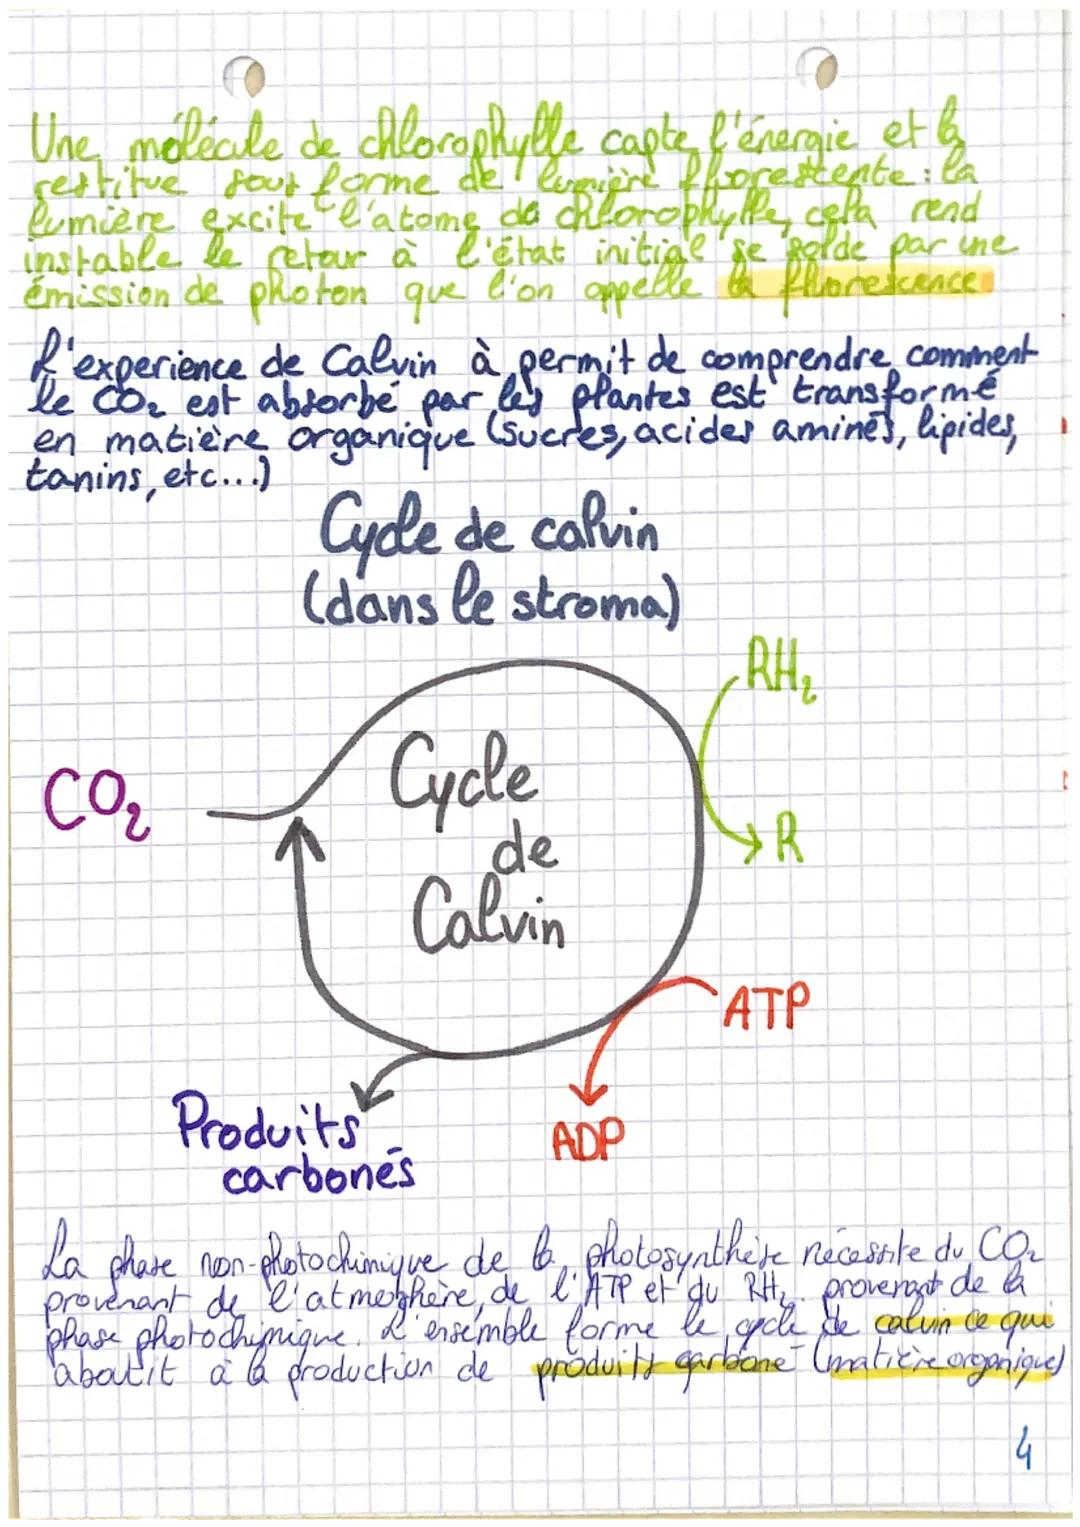 Une molécule de chlorophylle capte l'énergie et la
restitue sous forme de lumière fluorescente : la
lumière excite l'atome de chlorophylle, cela rend
instable le retour à l'état initial se solde par une
émission de photon que l'on appelle la fluorescence
L'experience de Calvin à permit de comprendre comment
le CO₂ est absorbé par les plantes est transformé
en matière organique (sucres, acides aminés, lipides,
tanins, etc...)
Cycle de calvin
(dans le stroma)
RH₂
CO₂
Cycle
de
Calvin
R
ATP
ADP
Produits
carbonés
La phase non-photochimique de la photosynthèse nécessite du CO₂
provenant de l'atmosphère, de l'ATP et du RH₂ provenant de la
phase photochimique. L'ensemble forme le cycle de calvin ce qui
aboutit à la production de produits carboné (matière organique)
4